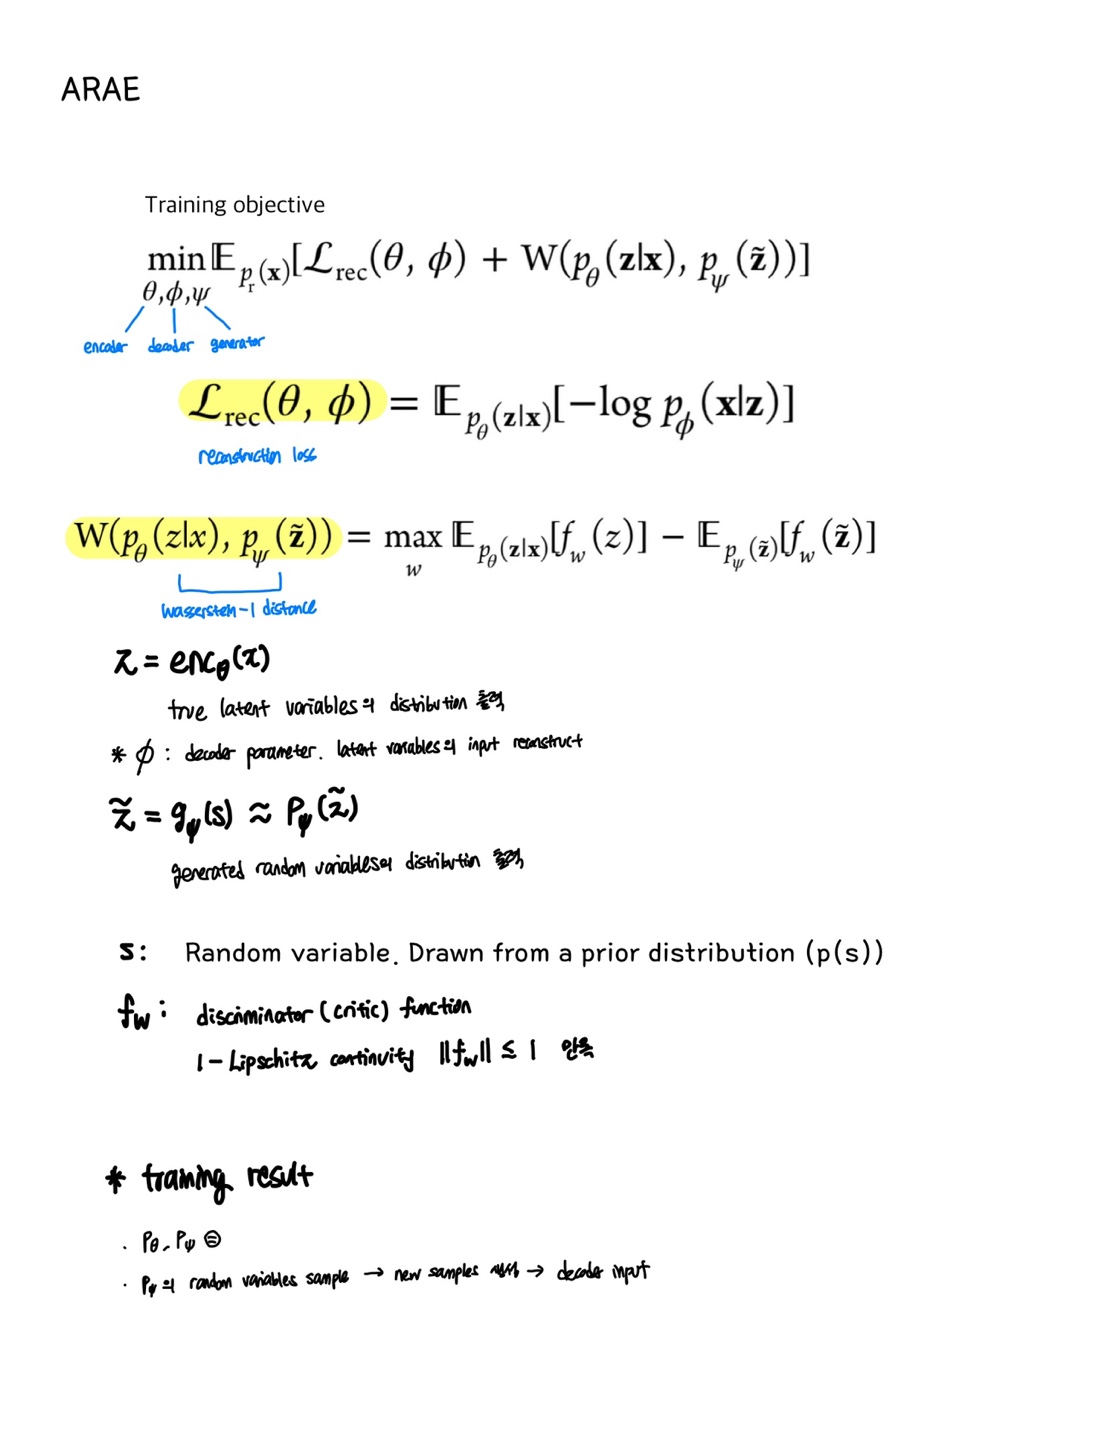 ARAE
Training objective
min_{θ,ϕ,ψ} 𝔼_{p_r(x)}[ℒ_rec(θ, ϕ) + W(p_θ(z|x), p_ψ(z̃))]
encoder decoder generator
ℒ_rec(θ, ϕ) = 𝔼_{p_θ(z|x)}[−log p_ϕ(x|z)]
reconstruction loss
W(p_θ(z|x), p_ψ(z̃)) = max_w 𝔼_{p_θ(z|x)}[f_w(z)] − 𝔼_{p_ψ(z̃)}[f_w(z̃)]
Wasserstein-1 distance
z = enc_θ(x)
true latent variables의 distribution 출력
* ϕ : decoder parameter. latent variables의 input reconstruct
z̃ = g_ψ(s) ≈ P_ψ(z̃)
generated random variables의 distribution 출력
s: Random variable. Drawn from a prior distribution (p(s))
f_w : discriminator (critic) function
1 - Lipschitz continuity ||f_w|| ≤ 1 만족
* training result
· P_θ, P_ψ
· P_ψ의 random variables sample → new samples → decoder input